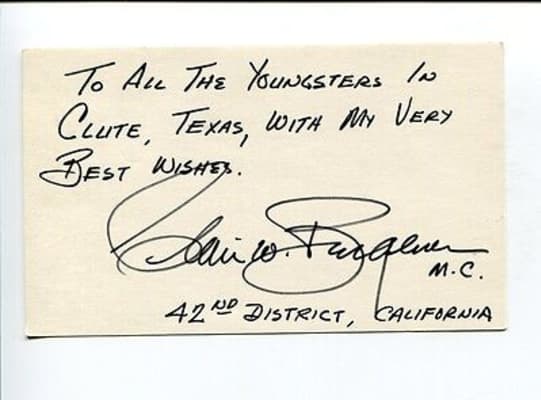 To All The Youngsters In
Clute, Texas, With My Very
Best Wishes.
Clair W. Burgener
M.C.
42nd District, California